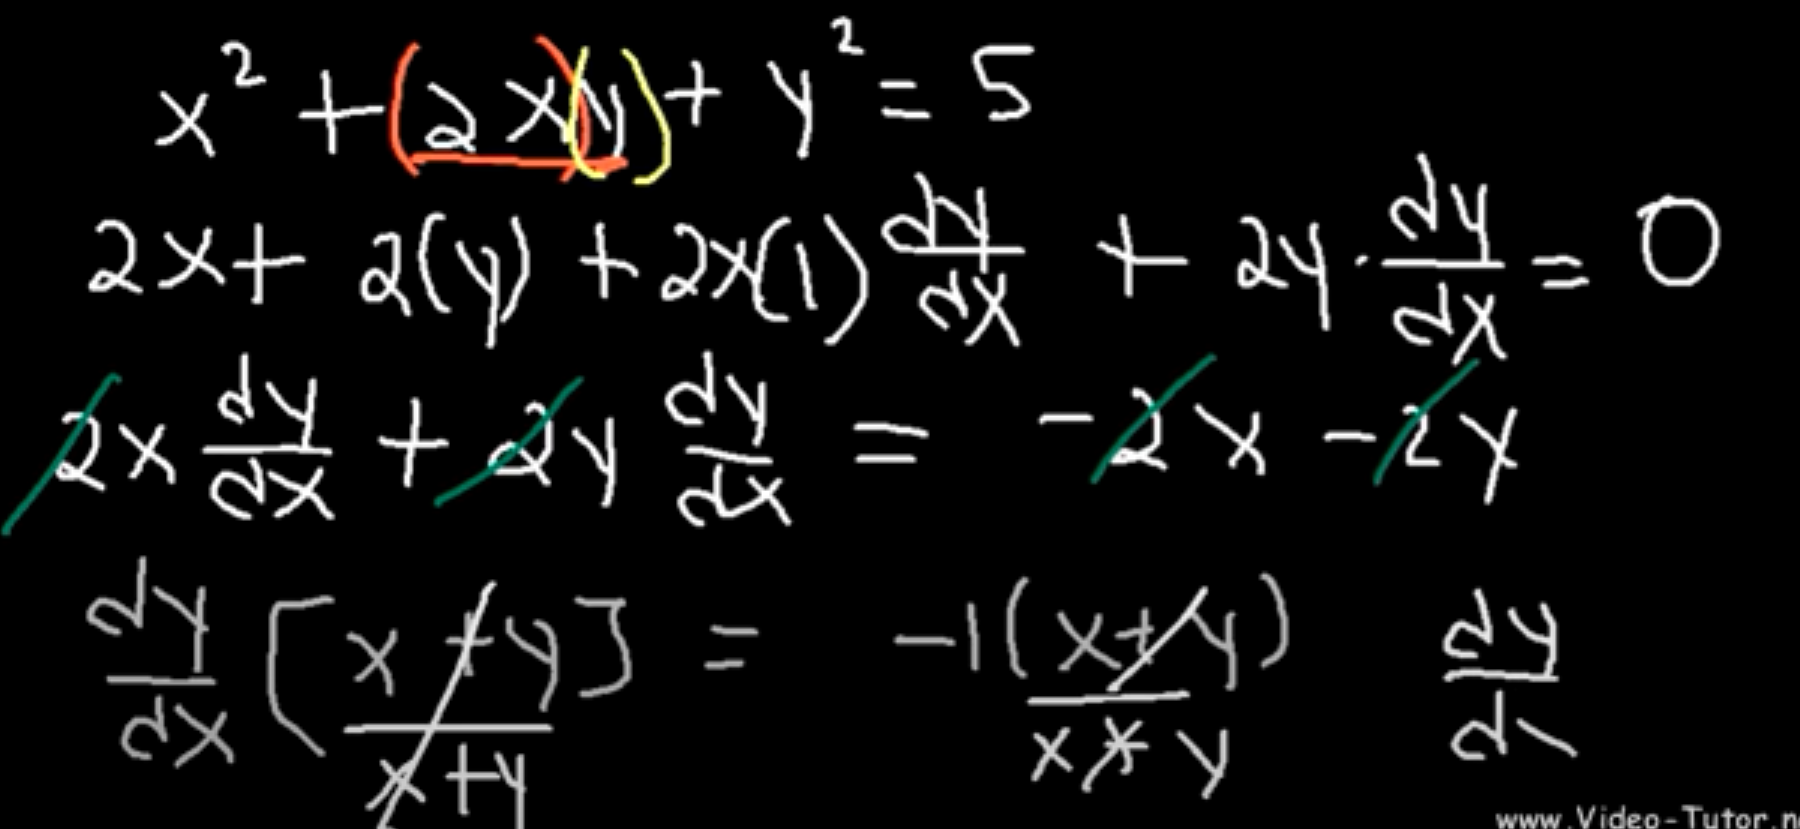 x² + (2x)(y) + y² = 5
2x + 2(y) + 2x(1) dy/dx + 2y · dy/dx = 0
2x dy/dx + 2y dy/dx = -2x - 2y
dy/dx [x + y]/x + y = -1(x + y)/x + y dy/d
www.Video-Tutor.n